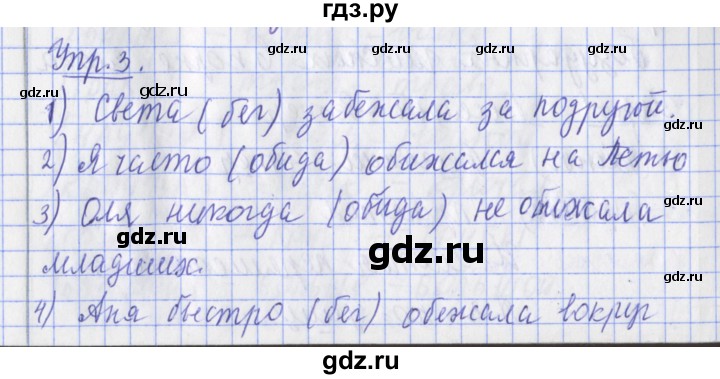 гдз.ру
gdz.ru gdz.ru
Упр.3.
gdz.ru gdz.ru gdz.ru
1) Света (бег) забежала за подругой.
2) Я часто (обида) обижался на Петю
gdz.ru gdz.ru gdz.ru
3) Оля никогда (обида) не обижала
gdz.ru gdz.ru
gdz.ru
младших.
gdz.ru gdz.ru
4) Аня быстро (бег) обежала вокруг
gdz.ru gdz.ru
gdz.ru